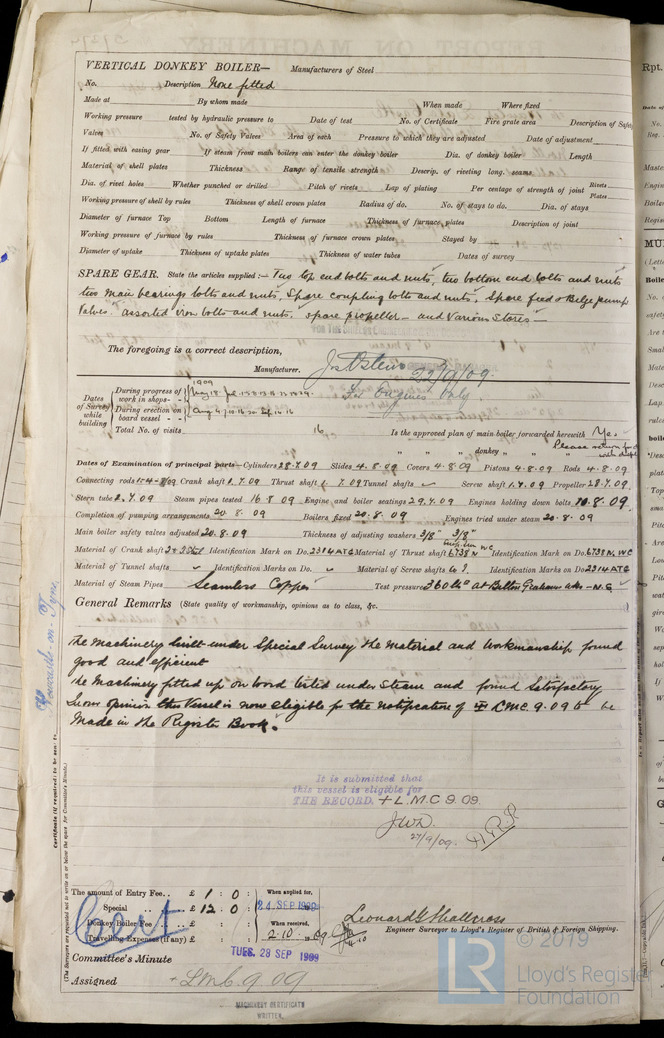 VERTICAL DONKEY BOILER— Manufacturers of Steel
No. Description None fitted
Made at By whom made When made Where fixed
Working pressure tested by hydraulic pressure to Date of test No. of Certificate Fire grate area Description of Safety
Valves No. of Safety Valves Area of each Pressure to which they are adjusted Date of adjustment
If fitted with easing gear If steam from main boilers can enter the donkey boiler Dia. of donkey boiler Length
Material of shell plates Thickness Range of tensile strength Descrip. of riveting long. seams
Dia. of rivet holes Whether punched or drilled Pitch of rivets Lap of plating Per centage of strength of joint Rivets Plates
Working pressure of shell by rules Thickness of shell crown plates Radius of do. No. of stays to do. Dia. of stays
Diameter of furnace Top Bottom Length of furnace Thickness of furnace plates Description of joint
Working pressure of furnace by rules Thickness of furnace crown plates Stayed by
Diameter of uptake Thickness of uptake plates Thickness of water tubes Dates of survey
SPARE GEAR. State the articles supplied:— Two top end bolts and nuts, two bottom end bolts and nuts
two main bearings bolts and nuts, Spare coupling bolts and nuts, Spare feed & Bilge pump
Valves. assorted iron bolts and nuts. spare propeller — and Various Stores —
The foregoing is a correct description,
Manufacturer. 22/9/09.
For Engines Only.
Dates of Survey while building
During progress of work in shops -- 1909
During erection on board vessel ---
Total No. of visits 16 Is the approved plan of main boiler forwarded herewith Yes
" " " donkey " " "
Dates of Examination of principal parts—Cylinders 28.7.09 Slides 4.8.09 Covers 4.8.09 Pistons 4.8.09 Rods 4.8.09
Connecting rods 4.8.09 Crank shaft 1.7.09 Thrust shaft 1.7.09 Tunnel shafts Screw shaft 1.7.09 Propeller 28.7.09
Stern tube 2.7.09 Steam pipes tested 16.8.09 Engine and boiler seatings 29.7.09 Engines holding down bolts 10.8.09
Completion of pumping arrangements 20.8.09 Boilers fixed 20.8.09 Engines tried under steam 20.8.09
Main boiler safety valves adjusted 20.8.09 Thickness of adjusting washers 3/8" 3/8"
Material of Crank shaft Identification Mark on Do. 2314ATG Material of Thrust shaft Identification Mark on Do. 6738N.WC
Material of Tunnel shafts Identification Marks on Do. Material of Screw shafts Identification Marks on Do. 2314ATG
Material of Steam Pipes Seamless Copper Test pressure 360 lbs
General Remarks (State quality of workmanship, opinions as to class, &c.
The Machinery built under Special Survey The material and workmanship found
good and efficient
The Machinery fitted up on board tested under Steam and found Satisfactory
In our opinion this Vessel is now eligible for the notification of LMC. 9.09 to be
Made in the Register Book.
Newcastle-on-Tyne
Certificate (if required) to be sent to
(The Surveyors are requested not to write on or below the space for Committee's Minute.)
It is submitted that
this vessel is eligible for
THE RECORD. + L.M.C 9.09.
27/9/09.
The amount of Entry Fee.. £ 1 : 0 : When applied for,
Special .. .. £ 12 : 0 : 24 SEP 1909
Donkey Boiler Fee .. £ : : When received,
Travelling Expenses (if any) £ : : 2.10.09
Cert
Leonard G Shallcross
Engineer Surveyor to Lloyd's Register of British & Foreign Shipping.
Committee's Minute TUES. 28 SEP 1909
Assigned + LMC. 9.09
MACHINERY CERTIFICATE
WRITTEN.
© 2019
LR
Lloyd's Register
Foundation